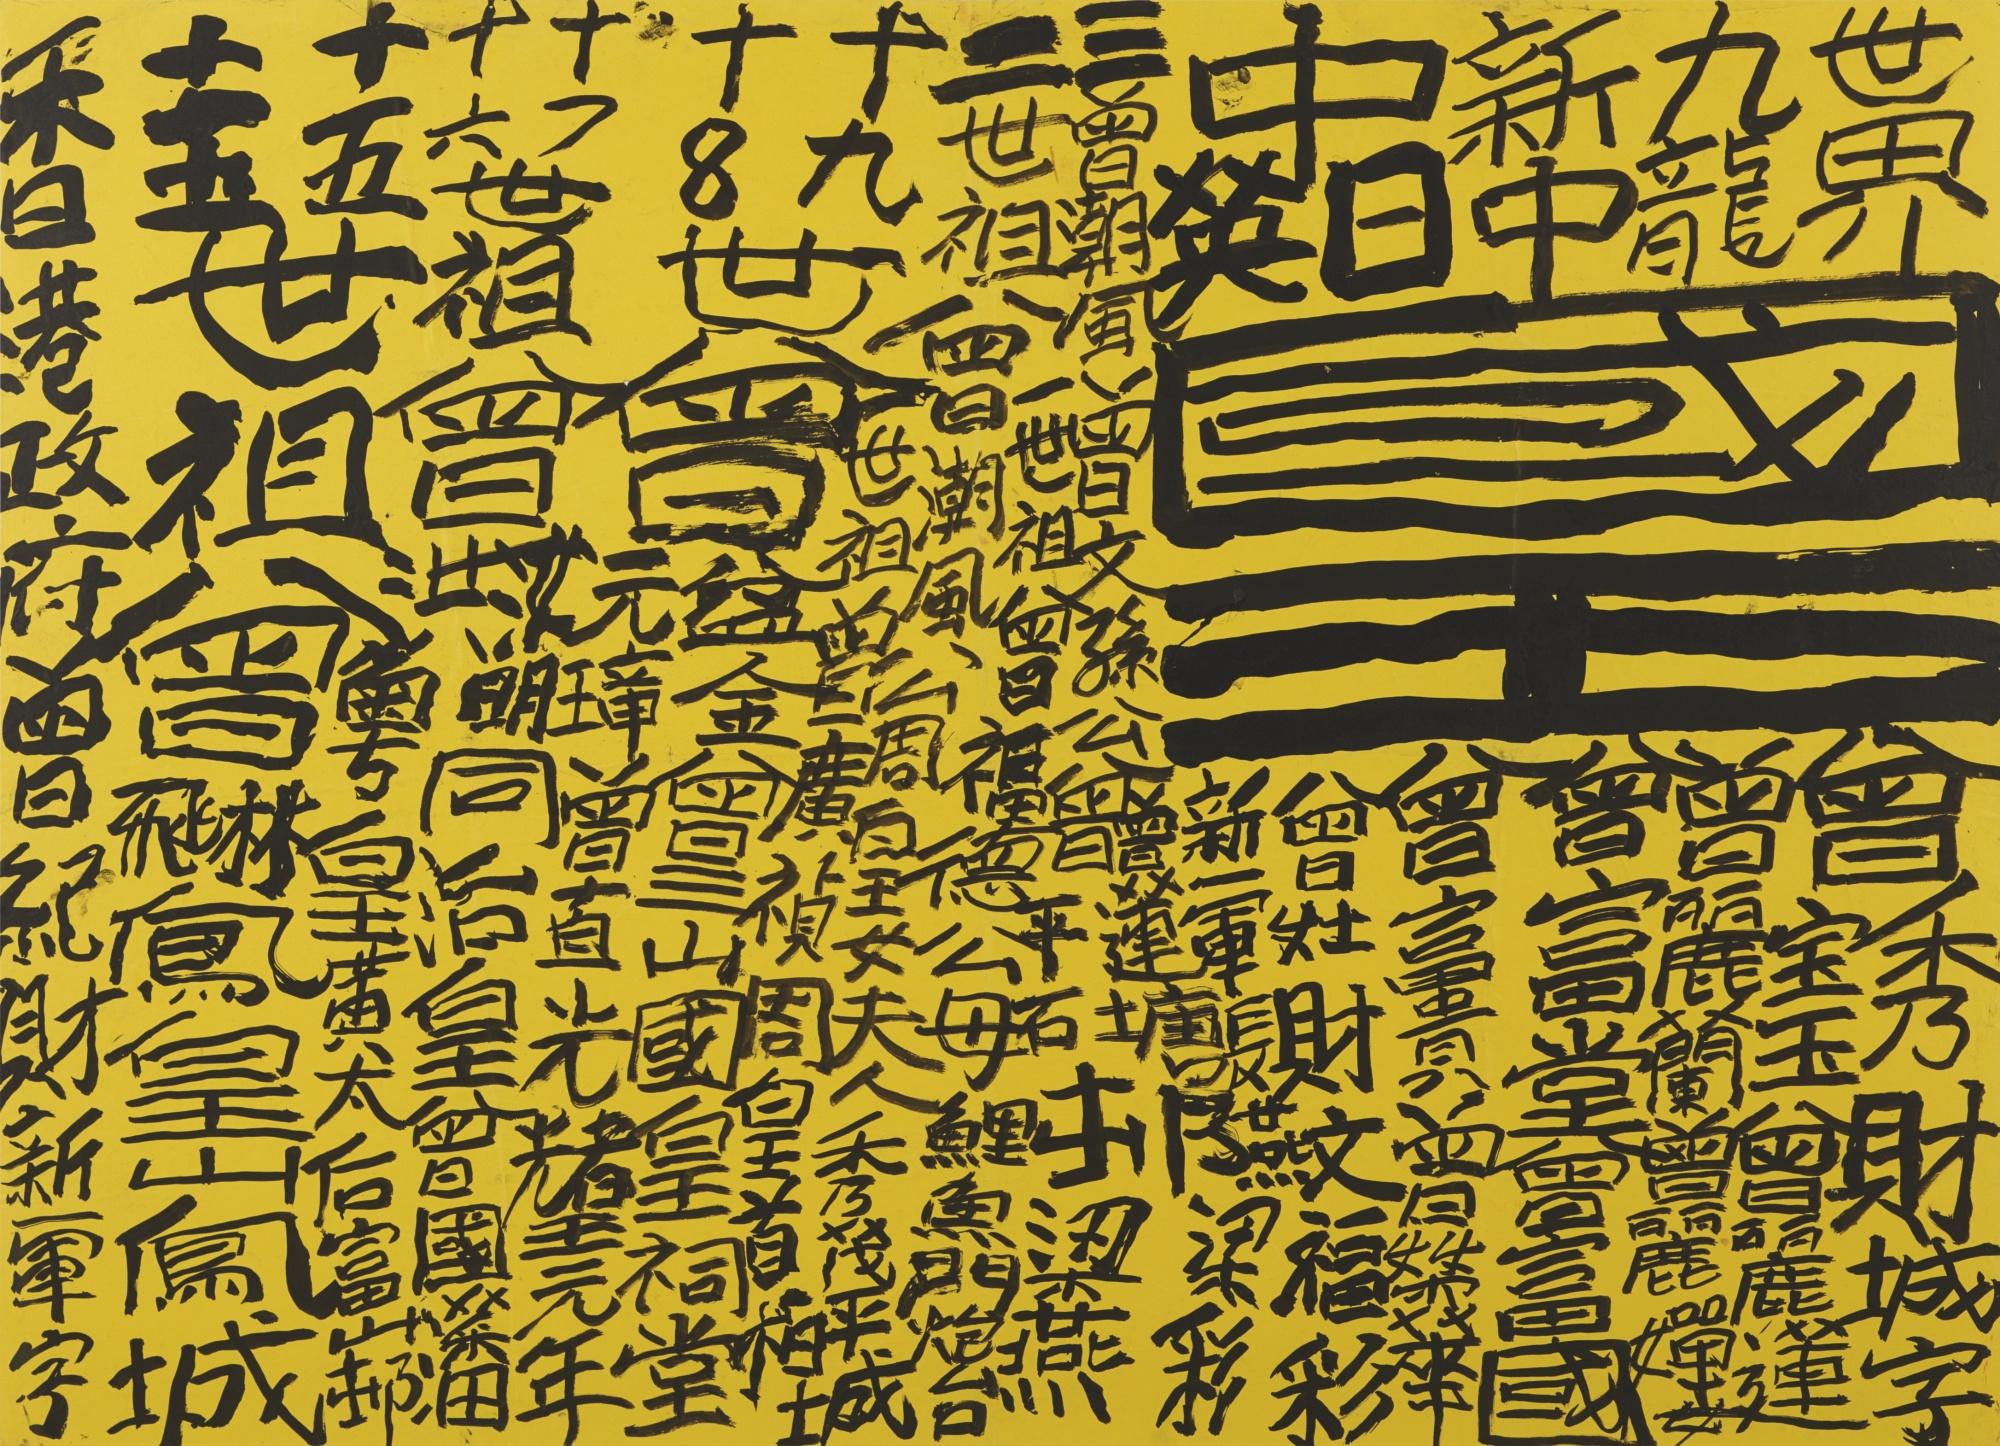 世界
九龍
新中
中日
英
國
王
曾秀
財城字
宝玉曾麗蓮
曾麗蘭曾麗嬋
曾富堂曾富國
曾富
曾榮華
曾灶財文福彩
新一軍
張
梁彩
三曾朝風
曾文孫公
曾
蓮塘
二世祖
曾潮風
一世祖曾福德公母
平石
鯉魚門
梁燕
世祖曾
周皇女夫人秀茂坪
十九
十8世
曾益金
曾三山國皇祠堂
廣禎周皇
首
城
十六世祖
曾
元璋
曾直光緒皇元年
明同治皇
曾國藩
十五世祖
曾
粵皇黃太后
富
林
飛鳳皇山鳳城
香港政府曾日紀財新軍字